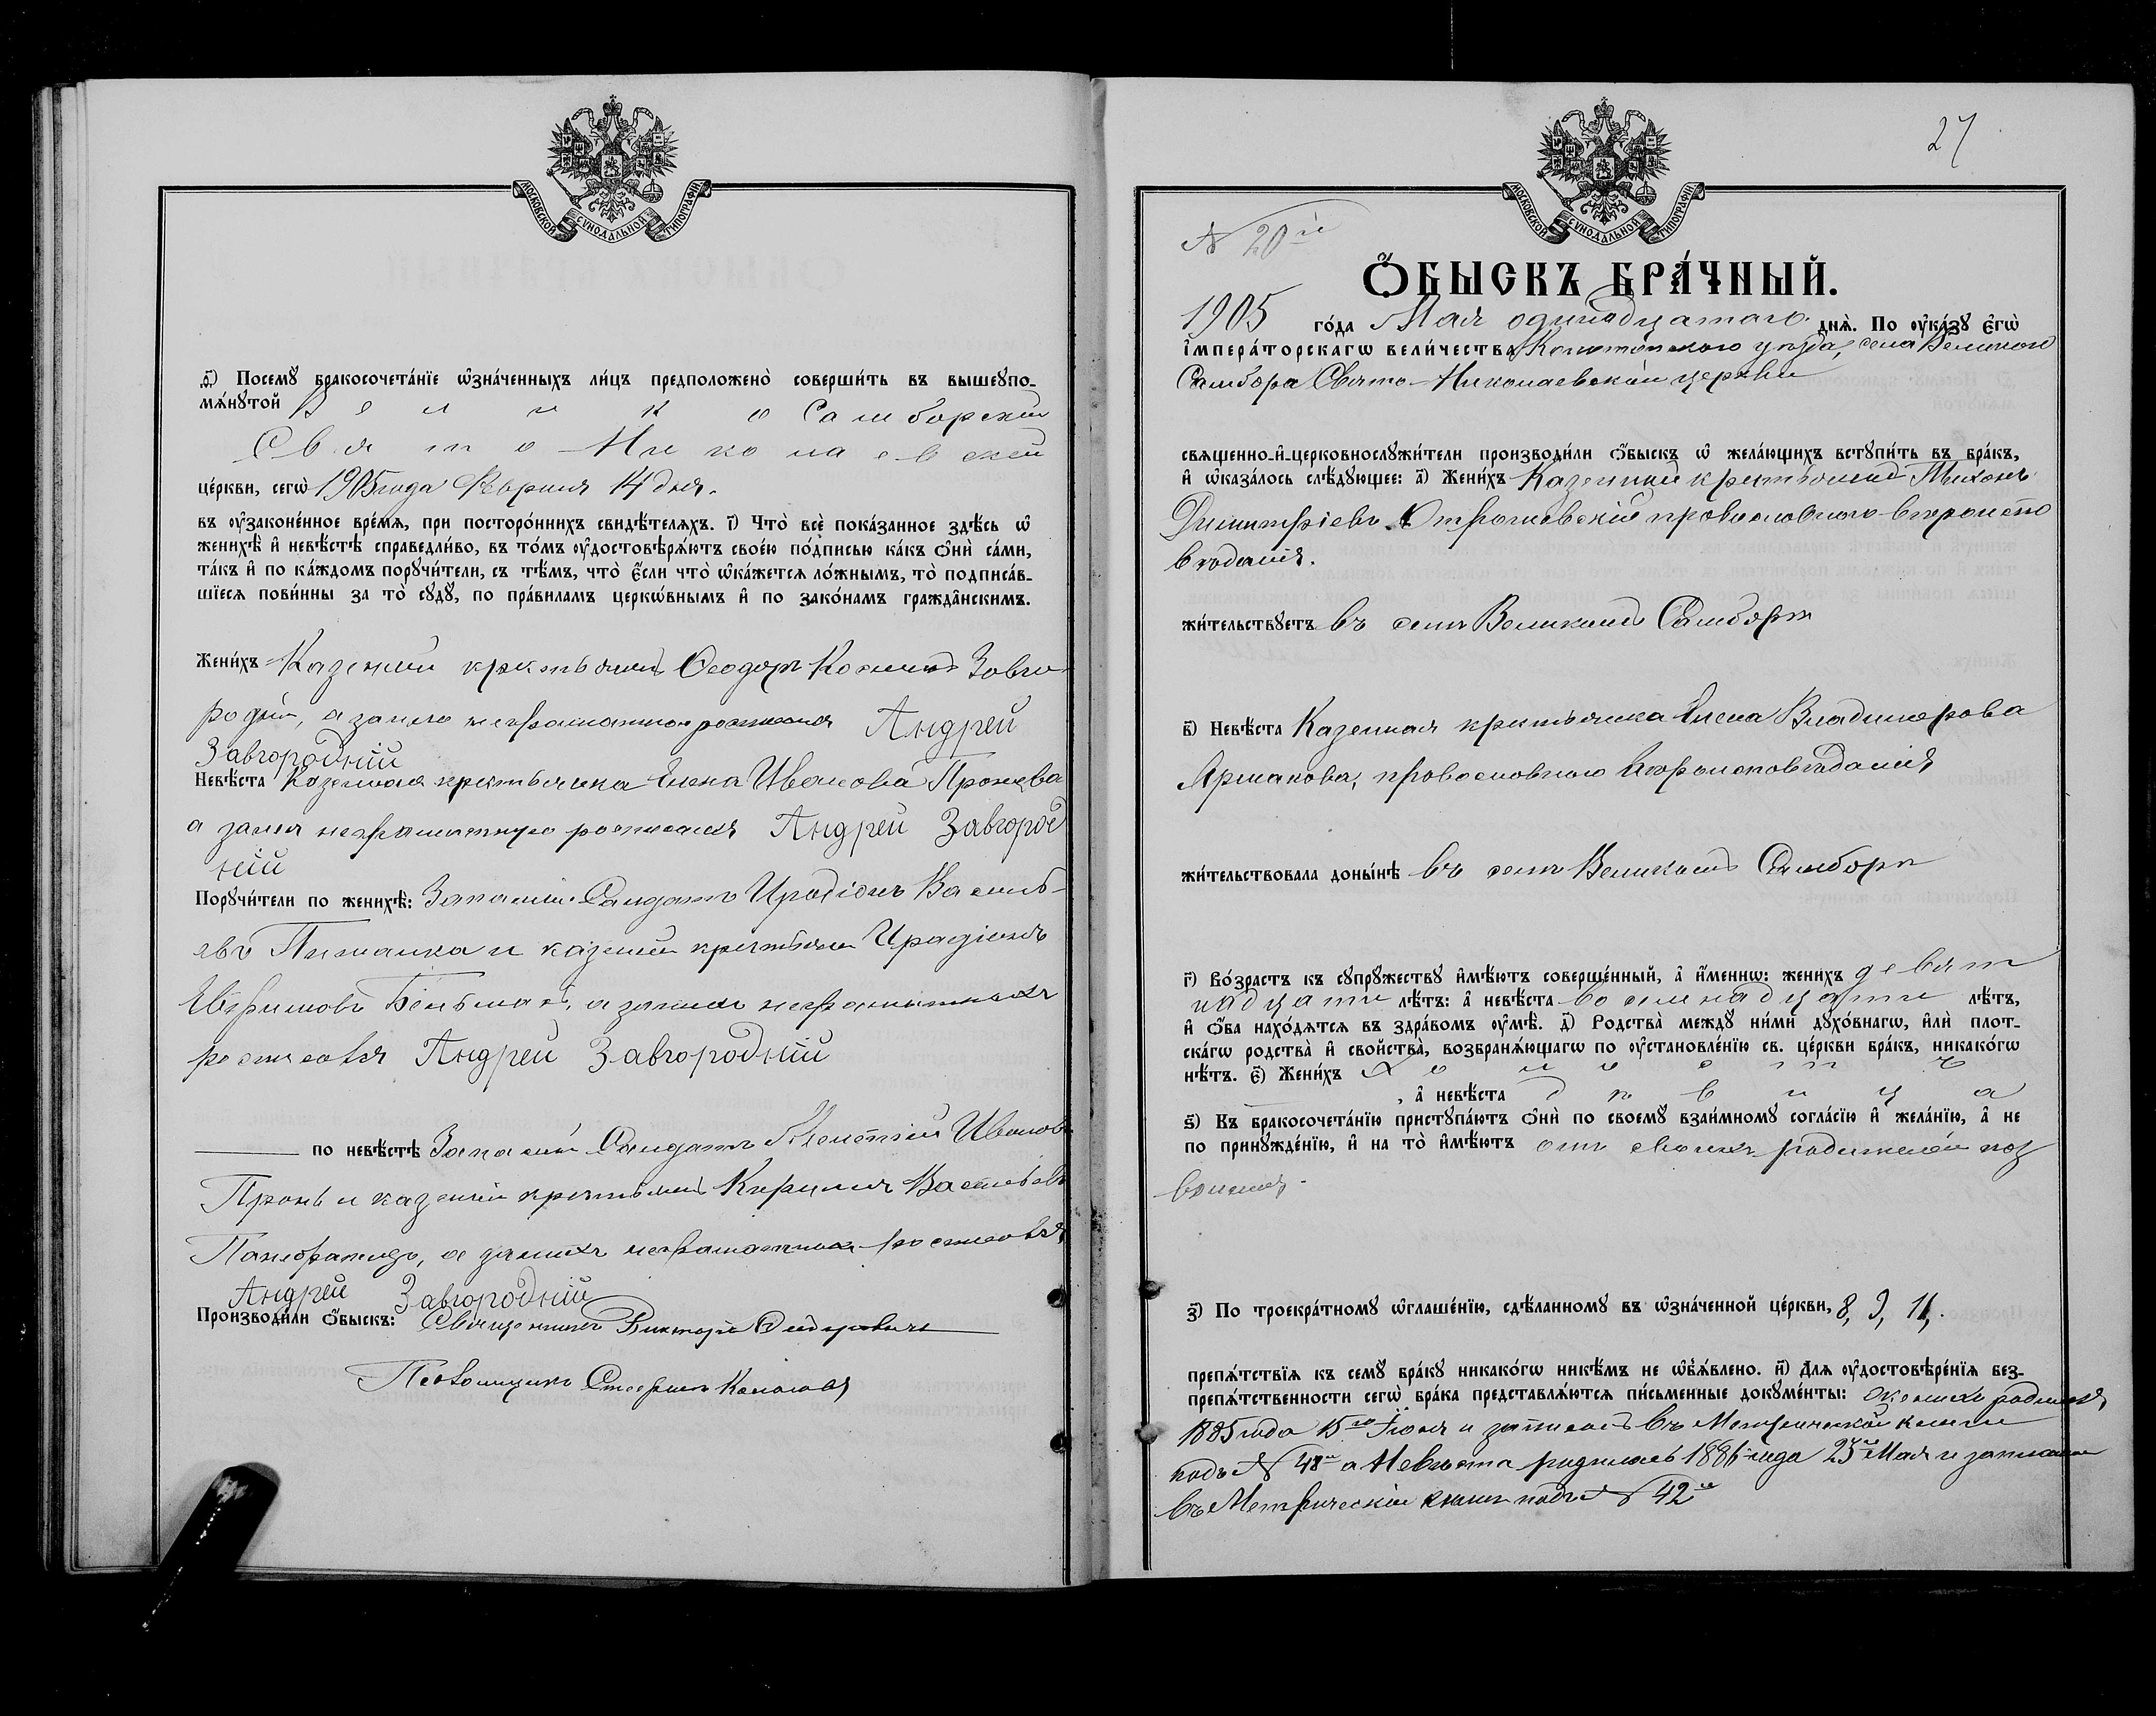 МОСКОВСКОЙ СѴНОДАЛЬНОЙ ТИПОГРАФІИ
ѳ҃) Посемꙋ̀ бракосочета́нїе ѡ҆зна́ченныхъ ли́цъ предположено̀ соверши́ть въ вышеꙋпо-
мѧ́нꙋтой Велико Самборской
Свято-Николаевской
це́ркви, сегѡ̀ 1905 года Февраля 14 дня.
въ ᲂу҆законе́нное вре́мѧ, при посторо́ннихъ свидѣ́телѧхъ. і҃) Что̀ всѐ пока́занное здѣ́сь ѡ҆
женихѣ̀ и҆ невѣ́стѣ справедли́во, въ то́мъ ᲂу҆достовѣрѧ́ютъ свое́ю по́дписью ка́къ ѻ҆нѝ са́ми,
та́къ и҆ по ка́ждомъ порꙋчи́тели, съ тѣ́мъ, что̀ є҆́сли что̀ ѡ҆ка́жетсѧ ло́жнымъ, то̀ подписа́в-
шїесѧ пови́нны за то̀ сꙋдꙋ̀, по пра́виламъ церкѡ́внымъ и҆ по зако́намъ гражда̑нскимъ.
Жени́хъ Казенный крестьянинъ Ѳеодоръ Косьминъ Завго-
родній, а за него неграмотнаго росписался Андрей
Завгородній
Невѣ́ста Казенная крестьянка Елена Иванова Пронева
а за нея неграмотную росписался Андрей Завгород
ній
Порꙋчи́тели по женихѣ̀: Запасный Солдатъ Иродіонъ Василь-
евъ и казенный крестьянинъ Иродіонъ
Евфимовъ а за нихъ неграмотныхъ
росписался Андрей Завгородній
по невѣ́стѣ Запасный Солдатъ Иванов
Пронь и казенный крестьянинъ Кирилъ Васильевъ
а за нихъ неграмотныхъ росписался
Андрей Завгородній
Производи́ли ѻ҆́быскъ: Священникъ Викторъ
Псаломщикъ Стефанъ
27
МОСКОВСКОЙ СѴНОДАЛЬНОЙ ТИПОГРАФІИ
№ 20й
Ѻ҆́БЫСКЪ БРА́ЧНЫЙ.
1905 го́да Мая одинадцатаго днѧ̀. По ᲂу҆ка́зꙋ є҆гѡ̀
і҆мпера́торскагѡ вели́чества Конотопского уезда, села Великого
Самбора Свято-Николаевской церкви
свѧщенно-и҆-церковнослꙋжи́тели производи́ли ѻ҆́быскъ ѡ҆ жела́ющихъ встꙋпи́ть въ бра́къ,
и҆ ѡ҆каза́лось слѣ́дꙋющее: а҃) Жени́хъ Казенный крестьянинъ
Димитріевъ православного вѣроиспо
вѣданія.
жи́тельствꙋетъ въ селѣ Великомъ Самборѣ
в҃) Невѣ́ста Казенная крестьянка Елена Владимерова
Ярмакова, православного вѣроисповѣданія
жи́тельствовала доны́нѣ въ селѣ Великомъ Самборѣ
г҃) Во́зрастъ къ сꙋпрꙋ́жествꙋ и҆мѣ́ютъ соверше́нный, а҆ и҆́меннѡ: жени́хъ девят
надцати лѣ́тъ: а҆ невѣ́ста восемнадцати лѣ́тъ,
и҆ ѻ҆́ба нахо́дѧтсѧ въ здра́вомъ ᲂу҆мѣ̀. д҃) Родства̀ междꙋ̀ ни́ми дꙋхо́внагѡ, и҆лѝ плот-
ска́гѡ родства̀ и҆ свойства̀, возбранѧ́ющагѡ по ᲂу҆становле́нїю св. це́ркви бра́къ, никако́гѡ
нѣ́тъ. є҃) Жени́хъ Холостъ
, а҆ невѣ́ста дѣвица
ѕ҃) Къ бракосочета́нїю пристꙋпа́ютъ ѻ҆нѝ по своемꙋ̀ взаи́мномꙋ согла́сїю и҆ жела́нїю, а҆ не
по принꙋжде́нїю, и҆ на то̀ и҆мѣ́ютъ отъ своихъ родителей поз
воленіе.
з҃) По троекра́тномꙋ ѡ҆глаше́нїю, сдѣ́ланномꙋ въ ѡ҆зна́ченной це́ркви, 8, 9, 11,.
препѧ́тствїѧ къ семꙋ̀ бра́кꙋ никако́гѡ никѣ́мъ не ѡ҆б̾ѧ́влено. и҃) Длѧ ᲂу҆достовѣре́нїѧ без-
препѧ́тственности сегѡ̀ бра́ка представлѧ́ютсѧ пи́сьменные докꙋме́нты: Женихъ родился
1885 года 15го Іюля и записанъ въ Метрической книги
подъ № 48м а Невѣста родилась 1886 года 23го Мая и записана
въ Метрической книги подъ № 42м